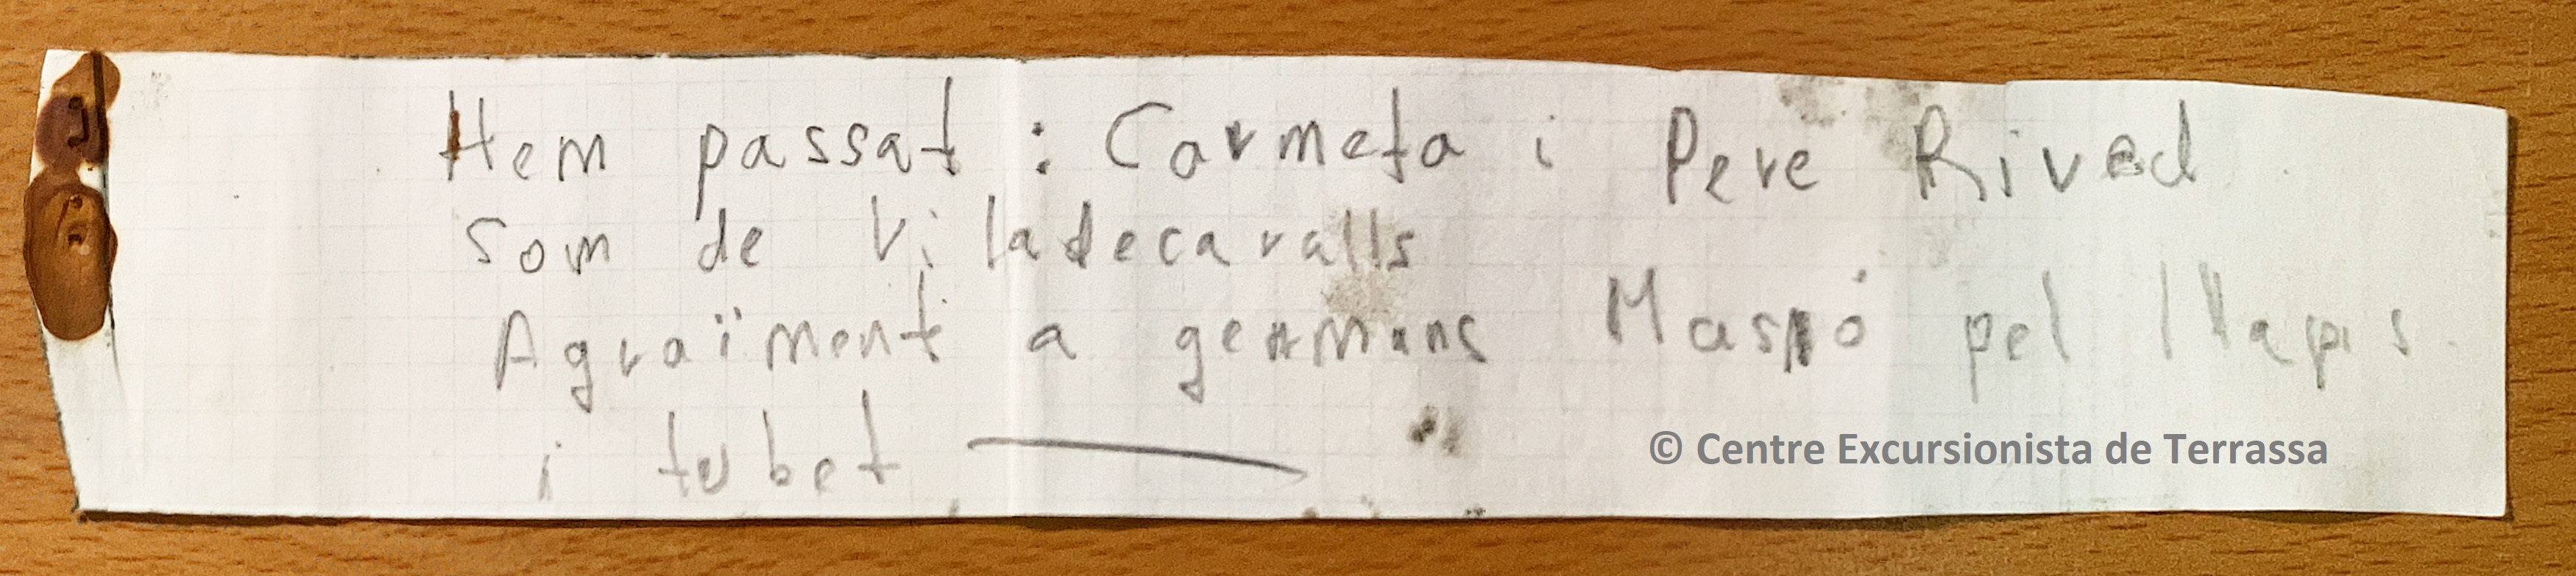 Hem passat : Carmeta i Pere Rived
Som de Viladecavalls
Agraïment a germans Maspó pel llapis
i tubet
© Centre Excursionista de Terrassa